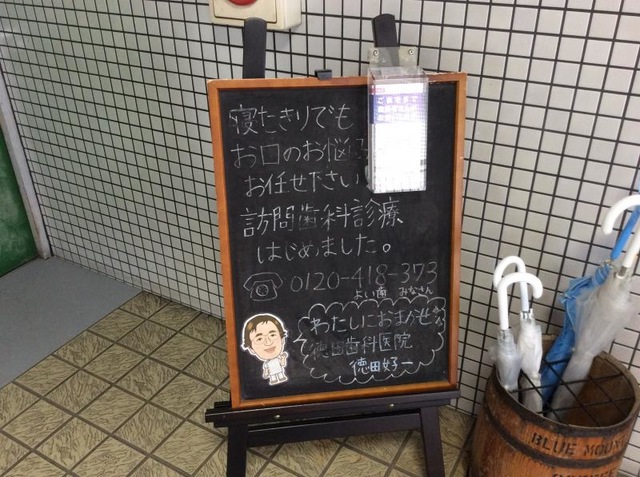 寝たきりでも
お口のお悩み
お任せ下さい
訪問歯科診療
はじめました。
0120-418-373
よい歯 みなさん
わたしにおまかせ
徳田歯科医院
徳田好一
BLUE MOUN